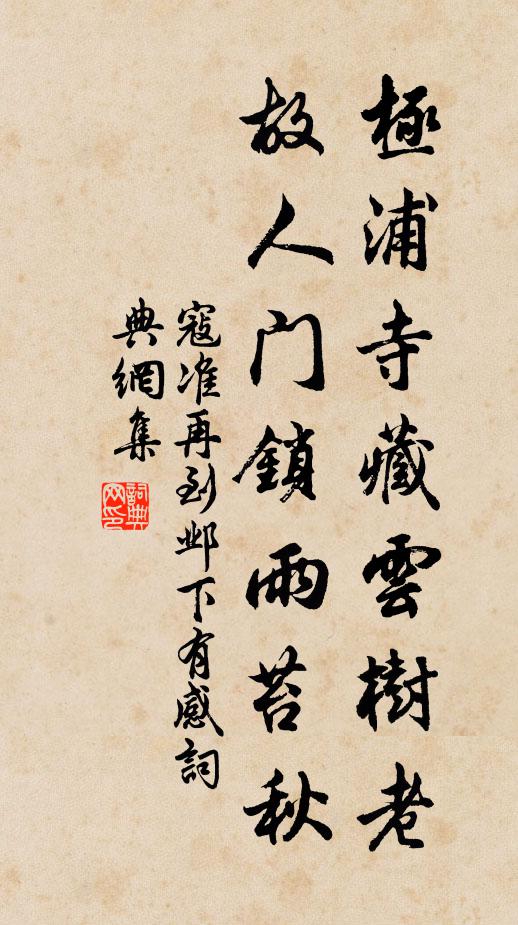 極浦寺藏雲樹老
故人門鎖雨苔秋
寇准再到邺下有感詞
典網集
詞典
网印